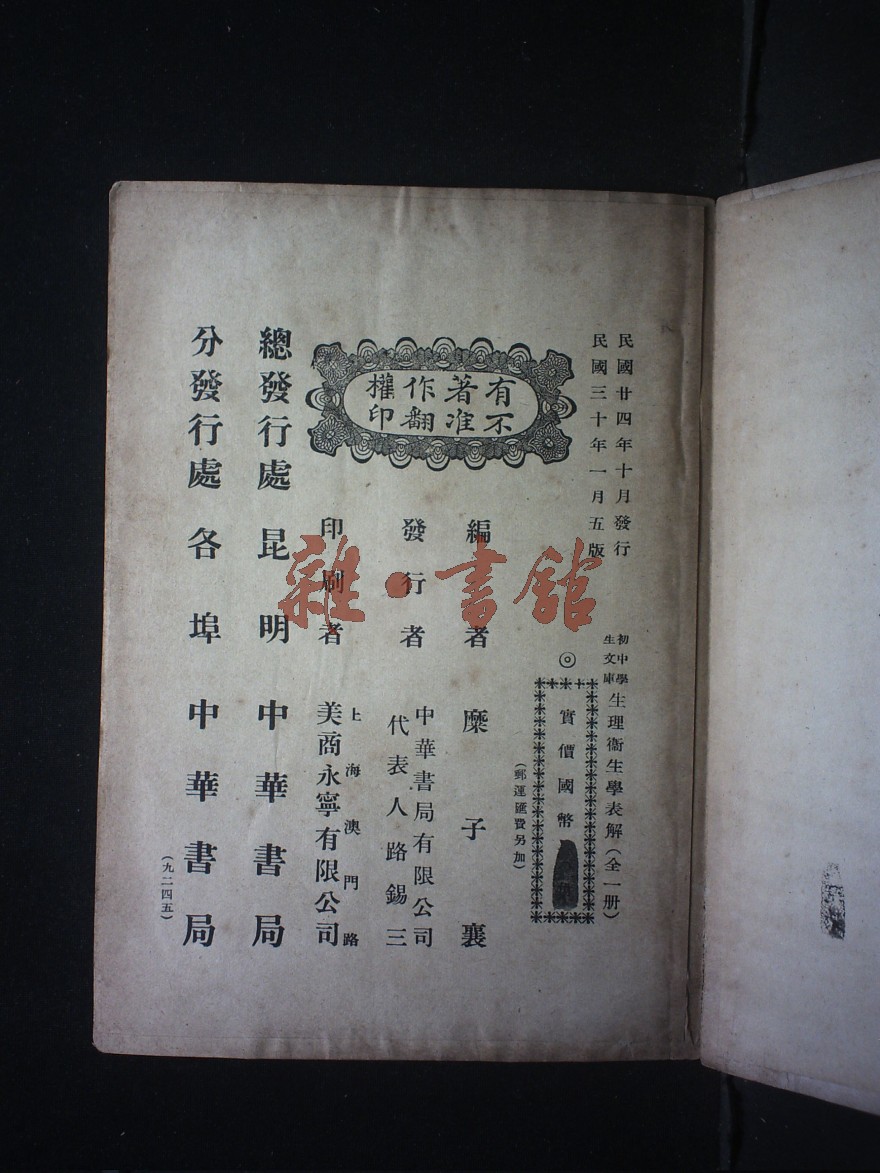 民國廿四年十月發行
民國三十年一月五版
初中學
生文庫
生理衞生學表解（全一册）
◎
實價國幣
（郵運匯費另加）
有著作權
不准翻印
編者 糜子襄
發行者
中華書局有限公司
代表人路錫三
印刷者
上海澳門路
美商永寧有限公司
總發行處 昆明中華書局
分發行處 各埠中華書局
（九二四五）
雜·書館